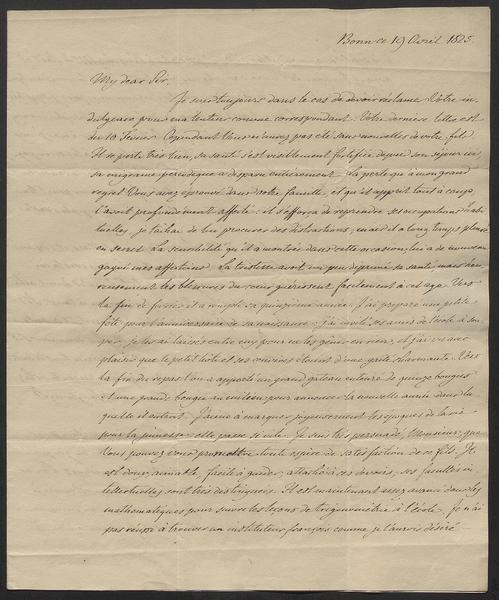 Bonn ce 19 Avril 1825.
My dear Sir.
Je suis toujours dans le cas de devoir réclamer Votre in-
dulgence pour ma lenteur comme correspondant. Votre dernière lettre est
du 10 Février. Cependant Vous n'avez pas été sans nouvelles de votre fils.
Il se porte très bien, sa santé s'est visiblement fortifiée depuis son séjour ici,
sa migraine périodique a disparu entièrement. La perte qu'à mon grand
regret Vous avez éprouvée dans votre famille, et qu'il apprit tout à coup
l'avoit profondément affecté: il s'efforça de reprendre ses occupations habi-
tuelles, je tâchai de lui procurer des distractions, mais il a long temps pleuré
en secret. La sensibilité qu'il a montrée dans cette occasion, lui a de nouveau
gagné mes affections. La tristesse avoit un peu déprimé sa santé, mais heu-
reusement les blessures du cœur guérissent facilement à cet age. Vers
la fin de février il a rempli sa quinzième année. J'ai préparé une petite
fête pour l'anniversaire de sa naissance: j'ai invité ses amis de l'école à sou-
per, je les ai laissés entre eux pour ne les gêner en rien, et j'ai vu avec
plaisir que le petit hôte et ses convives étoient d'une gaité charmante. Vers
la fin du repas l'on a apporté un grand gateau entouré de quinze bougies
et une grande bougie au milieu pour annoncer la nouvelle année dans la-
quelle il entroit. J'aime à marquer joyeusement les époques de la vie
pour la jeunesse: elle passe si vite. Je suis très persuadé, Monsieur, que
Vous pouvez vous promettre toute espèce de satisfaction de ce fils. Il
est doux, aimable, facile à guider, attaché à ses devoirs, ses facultés in-
tellectuelles sont très distinguées. Il est maintenant assez avancé dans les
mathématiques pour suivre les leçons de trigonométrie à l'école. Je n'ai
pas réussi à trouver un instituteur françois comme je l'aurois désiré